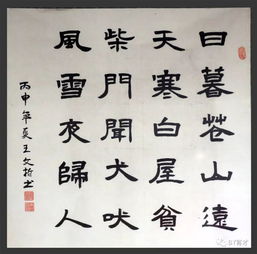 日暮苍山遠
天寒白屋貧
柴門聞犬吠
風雪夜歸人
丙申年夏王文哲书